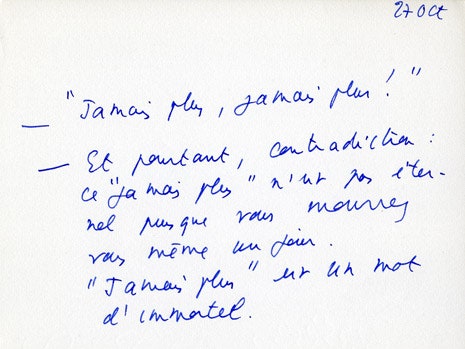 27 oct
— "Jamais plus, jamais plus ! "
— Et pourtant, contradiction :
ce "jamais plus" n'est pas éter-
nel puisque vous mourrez
vous même un jour.
"Jamais plus" est un mot
d'immortel.